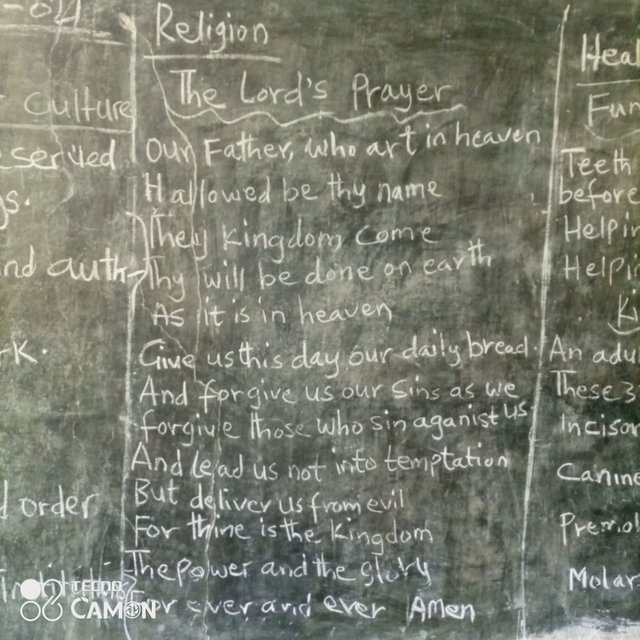 Culture
served
gs.
and auth
rk.
order
Religion
The Lord's Prayer
Our Father, who art in heaven
Hallowed be thy name
They kingdom come
Thy will be done on earth
As it is in heaven
Give us this day our daily bread.
And forgive us our sins as we
forgive those who sin aganist us
And lead us not into temptation
But deliver us from evil
For thine is the kingdom
The power and the glory
For ever and ever Amen
Heal
Fun
Teeth
before
Helpin
Helpi
Ki
An adu
These 3
Incisor
Canine
Premol
Molar
TECNO
CAMON